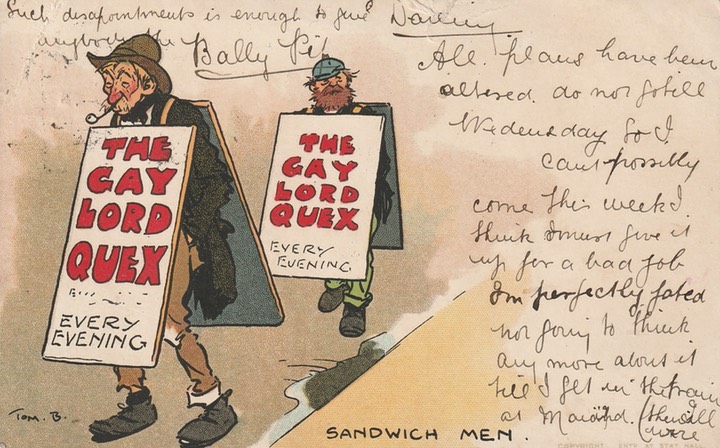 Such disapointments is enough to give
anybody the
Bally Pip
Darling
All plans have been
altered. do not go till
Wedensday so I
cant possibly
come this week I
think I must give it
up for a bad job
Im perfectly fated
not going to think
any more about it
till I get in the train
at
THE
GAY
LORD
QUEX
EVERY
EVENING
THE
GAY
LORD
QUEX
EVERY
EVENING
TOM. B.
SANDWICH MEN.
COPYRIGHT